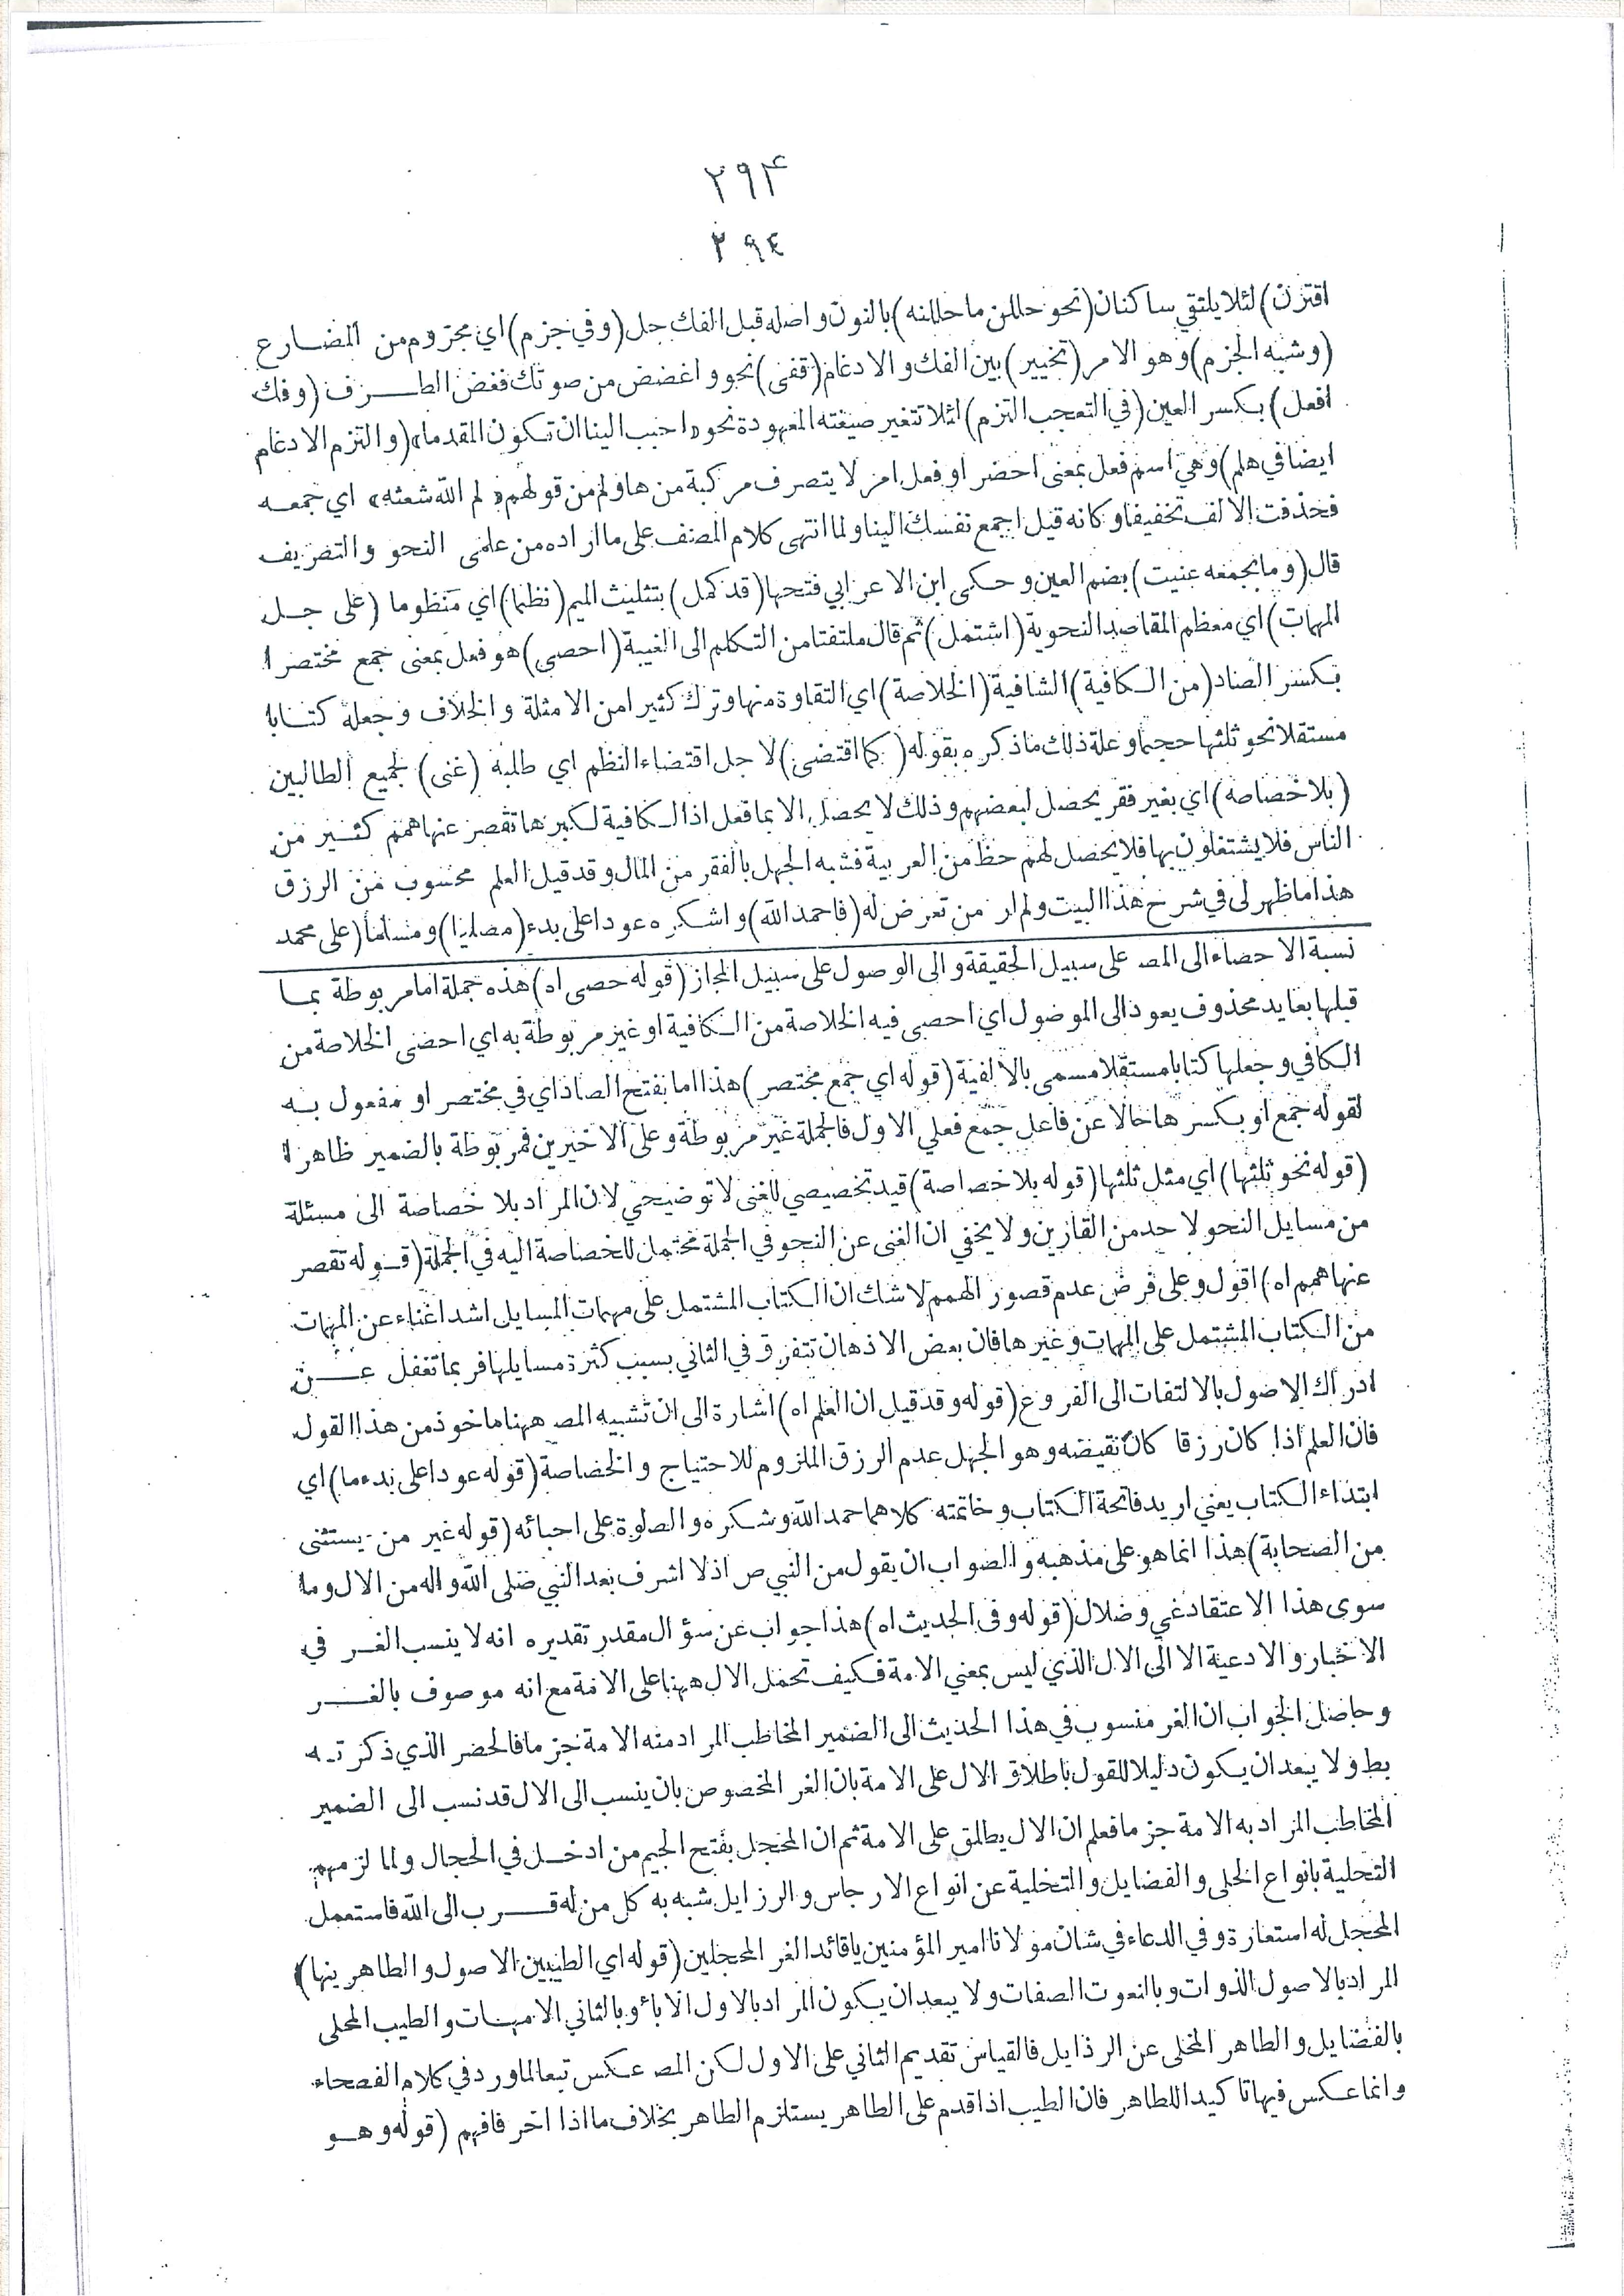 ۲۹۴
٢٩٤
اقترن) لئلا يلتقي ساكنان (نحو حللن ما حللنه) بالنون واصله قبل الفك حل (وفي جزم) اي مجزوم من المضارع
(وشبه الجزم) وهو الامر (تخيير) بين الفك والادغام (قفى) نحو واغضض من صوتك فغض الطرف (وفك
افعل) بكسر العين (في التعجب التزم) لئلا تتغير صيغته المعهودة نحو «احبب الينا ان تكون المقدما» (والتزم الادغام
ايضا في هلم) وهي اسم فعل بمعنى احضر او فعل امر لا يتصرف مركبة من ها ولم من قولهم «لم الله شعثه» اي جمعه
فحذفت الالف تخفيفا وكانه قيل اجمع نفسك الينا ولما انتهى كلام المصنف على ما اراده من علمي النحو والتصريف
قال (وما بجمعه عنيت) بضم العين وحكى ابن الاعرابي فتحها (قد كمل) بتثليث الميم (نظما) اي منظوما (على جل
المهمات) اي معظم المقاصد النحوية (اشتمل) ثم قال ملتفتا من التكلم الى الغيبة (احصى) هو فعل بمعنى جمع مختصرا
بكسر الصاد (من الكافية) الشافية (الخلاصة) اي النقاوة منها وترك كثيرا من الامثلة والخلاف وجعله كتابا
مستقلا نحو ثلثها حجما وعلة ذلك ما ذكره بقوله (كما اقتضى) لاجل اقتضاء النظم اي طلبه (غنى) لجميع الطالبين
(بلا خصاصة) اي بغير فقر يحصل لبعضهم وذلك لا يحصل الا بما فعل اذ الكافية لكبرها تقصر عنها همم كثير من
الناس فلا يشتغلون بها فلا يحصل لهم حظ من العربية فشبه الجهل بالفقر من المال وقد قيل العلم محسوب من الرزق
هذا ما ظهر لى في شرح هذا البيت ولم ار من تعرض له (فاحمد الله) واشكره عودا على بدء (مصليا) ومسلما (على محمد
نسبة الاحصاء الى المصـ على سبيل الحقيقة والى الوصول على سبيل المجاز (قوله حصى اه) هذه جملة اما مربوطة بما
قبلها بعايد محذوف يعود الى الموصول اي احصى فيه الخلاصة من الكافية او غير مربوطة به اي احصى الخلاصة من
الكافي وجعلها كتابا مستقلا مسمى بالالفية (قوله اي جمع مختصر) هذا اما بفتح الصاد اي في مختصر او مفعول به
لقوله جمع او بكسرها حالا عن فاعل جمع فعلى الاول فالجملة غير مربوطة وعلى الاخيرين فمربوطة بالضمير ظاهرا
(قوله نحو ثلثها) اي مثل ثلثها (قوله بلا خصاصة) قيد تخصيصي للغنى لا توضيحي لان المراد بلا خصاصة الى مسئلة
من مسايل النحو لاحد من القارين ولا يخفى ان الغنى عن النحو في الجملة محتمل للخصاصة اليه في الجملة (قوله تقصر
عنها همم اه) اقول وعلى فرض عدم قصور الهمم لا شك ان الكتاب المشتمل على مهمات المسايل اشد اغناء عن المهمات
من الكتاب المشتمل على المهمات وغيرها فان بعض الاذهان تتفرق في الثاني بسبب كثرة مسايلها فربما تغفل عن
ادراك الاصول بالالتفات الى الفروع (قوله وقد قيل ان العلم اه) اشارة الى ان تشبيه المصـ ههنا ماخوذ من هذا القول
فان العلم اذا كان رزقا كان نقيضه وهو الجهل عدم الرزق الملزوم للاحتياج والخصاصة (قوله عودا على بدء ما) اي
ابتداء الكتاب يعني اريد فاتحة الكتاب وخاتمته كلاهما حمد الله وشكره والصلوة على احبائه (قوله غير من يستثنى
من الصحابة) هذا انما هو على مذهبه والصواب ان يقول من النبي ص اذ لا اشرف بعد النبي صلى الله واله من الال وما
سوى هذا الاعتقاد غي وضلال (قوله وفي الحديث اه) هذا جواب عن سؤال مقدر تقديره انه لا ينسب الغر في
الاخبار والادعية الا الى الال الذي ليس بمعني الامة فكيف تحمل الال ههنا على الامة مع انه موصوف بالغر
وحاصل الجواب ان الغر منسوب في هذا الحديث الى الضمير المخاطب المراد منه الامة جزما فالحصر الذي ذكرته
بط ولا يبعد ان يكون دليلا للقول باطلاق الال على الامة بان الغر المخصوص بان ينسب الى الال قد نسب الى الضمير
المخاطب المراد به الامة جزما فعلم ان الال يطلق على الامة ثم ان المحجل بفتح الجيم من ادخل في الحجال ولما لزمهم
التحلية بانواع الحلى والفضايل والتخلية عن انواع الارجاس والرزايل شبه به كل من له قرب الى الله فاستعمل
المحجل له استعارة وفي الدعاء في شان مولانا امير المؤمنين يا قائد الغر المحجلين (قوله اي الطيبين الاصول والطاهرينها)
المراد بالاصول الذوات وبالنعوت الصفات ولا يبعد ان يكون المراد بالاول الاباء وبالثاني الامهات والطيب المحلى
بالفضايل والطاهر المخلى عن الرذايل فالقياس تقديم الثاني على الاول لكن المصـ عكس تبعا لما ورد في كلام الفصحاء
وانما عكس فيها تاكيدا للطاهر فان الطيب اذا قدم على الطاهر يستلزم الطاهر بخلاف ما اذا اخر فافهم (قوله وهو